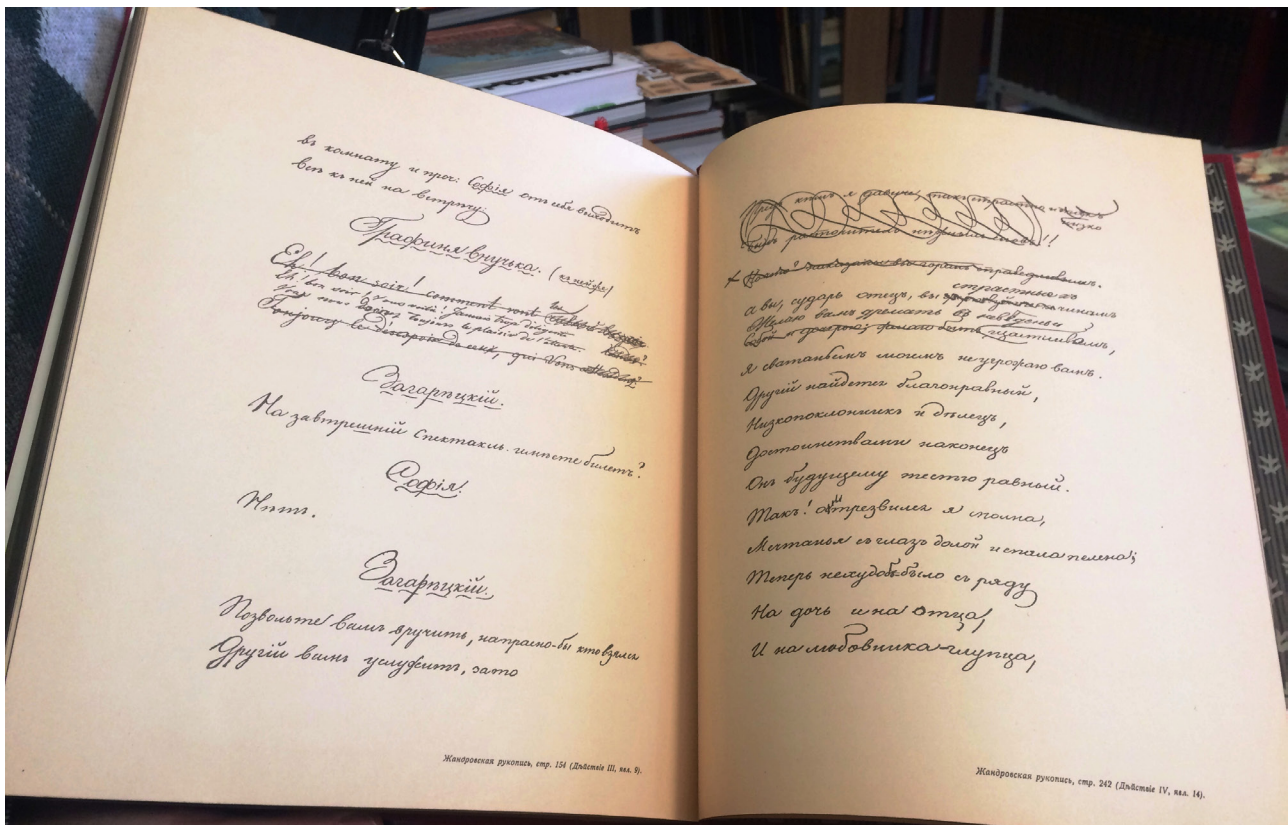 въ комнату и проч: Софія отъ себя выходитъ
всѣ къ ней на встрѣчу:
Графиня внучька. (
Eh! bon soir! comment vont
Eh! bon soir! Vous voilà! Jamais trop diligente
Vous nous donnez toujours le plaisir de l'attente.
Toujours le
Загарѣцкій.
На завтрешній спектакль имѣете билетъ?
Софія.
Нѣтъ.
Загарѣцкій.
Позвольте вамъ вручить, напрасно-бы кто взялся
Другій вамъ услужить, зато
Жандровская рукопись, стр. 154 (Дѣйствіе III, явл. 9).
я давиче, такъ страстно и
низко
!!
страстныхъ
а вы, сударь отецъ, вы къ чинамъ
Желаю вамъ дремать въ невѣденьи
счастливомъ,
Я сватаньемъ моимъ не угрожаю вамъ.
Другій найдется благонравный,
Низкопоклонникъ и дѣлецъ,
Достоинствами наконецъ
Онъ будущему тестю равный.
Такъ! отрезвился я сполна,
Мечтанья съ глазъ долой и спала пелена;
Теперь нехудобъ было съ ряду
На дочь и на отца,
И на любовника-глупца,
Жандровская рукопись, стр. 242 (Дѣйствіе IV, явл. 14).